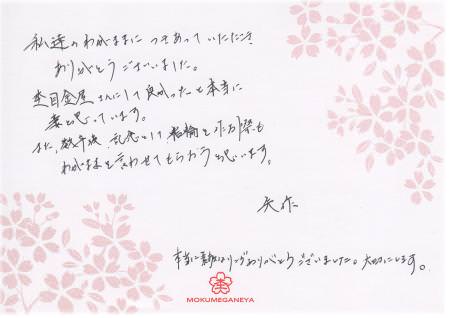 私達のわがままに つきあっていただき
ありがとうございました。
杢目金屋さんにして良かったーと本当に
思っています。
また、数年後、記念として指輪を作る際も
わがままを言わせてもらおうと思います。
矢作
本当に素敵なリングありがとうございました。大切にします。
MOKUMEGANEYA